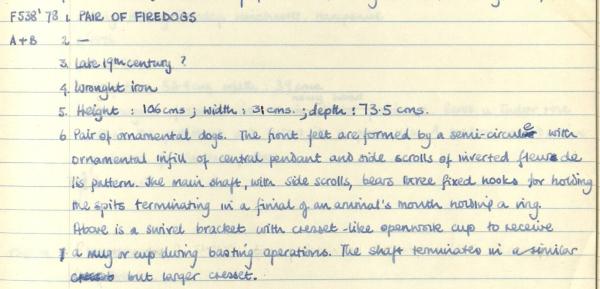 F538'78 1. PAIR OF FIREDOGS
A+B 2 —
3. Late 19th century ?
4. Wrought iron
5. Height : 106 cms ; width : 31 cms. ; depth : 73.5 cms.
6 Pair of ornamental dogs. The front feet are formed by a semi-circule with
ornamental infill of central pendant and side scrolls of inverted fleur de
lis pattern. The main shaft, with side scrolls, bears three fixed hooks for holding
the spits terminating in a finial of an animal's mouth holding a ring.
Above is a swivel bracket with cresset-like openwork cup to receive
a mug or cup during basting operations. The shaft terminates in a similar
but larger cresset.